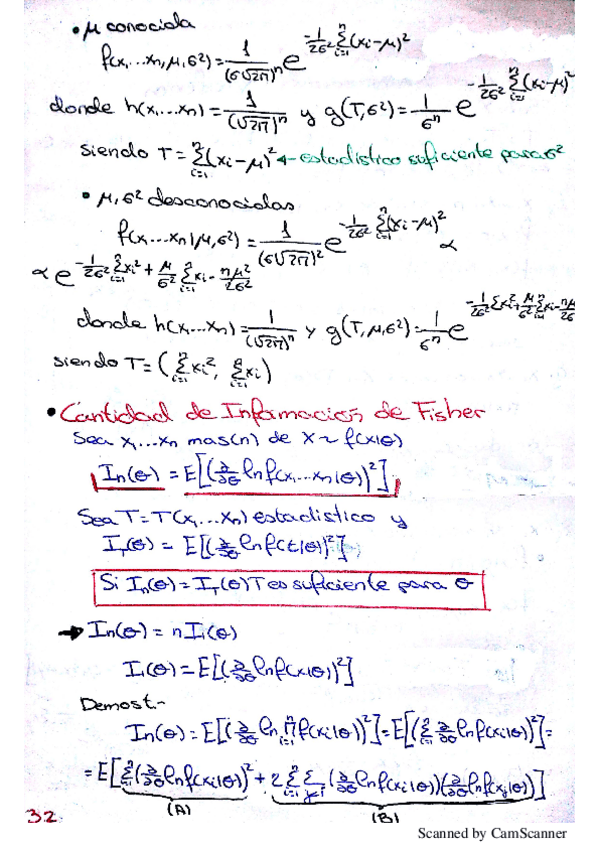 • μ conocida
f(x₁...xn, μ, σ²) = 1/(σ√2π)ⁿ e^(-1/2σ² Σᵢ₌₁ⁿ(xi-μ)²)
donde h(x₁...xn) = 1/(√2π)ⁿ y g(T,σ²) = 1/σⁿ e^(-1/2σ² Σᵢ₌₁ⁿ(xi-μ)²)
siendo T = Σᵢ₌₁ⁿ(xi-μ)² ← estadístico suficiente para σ²
• μ, σ² desconocidas
f(x₁...xn|μ,σ²) = 1/(σ√2π)² e^(-1/2σ² Σᵢ₌₁ⁿ(xi-μ)²) ∝
∝ e^(-1/2σ² Σᵢ₌₁ⁿ xi² + μ/σ² Σᵢ₌₁ⁿ xi - nμ²/2σ²)
donde h(x₁...xn) = 1/(√2π)ⁿ y g(T,μ,σ²) = 1/σⁿ e^(-1/2σ² Σxi² + μ/σ² Σᵢ₌₁ⁿ xi - nμ/2σ
siendo T = (Σᵢ₌₁ⁿ xi², Σᵢ₌₁ⁿ xi)
• Cantidad de Información de Fisher
Sea x₁...xn mas(n) de X ~ f(x|θ)
In(θ) = E[(∂/∂θ ln f(x₁...xn|θ))²]
Sea T = T(x₁...xn) estadístico y
IT(θ) = E[(∂/∂θ ln f(t|θ))²]
Si In(θ) = IT(θ) T es suficiente para θ
→ In(θ) = n I₁(θ)
I₁(θ) = E[(∂/∂θ ln f(x|θ))²]
Demost.-
In(θ) = E[(∂/∂θ ln Πᵢ₌₁ⁿ f(xi|θ))²] = E[(Σᵢ₌₁ⁿ ∂/∂θ ln f(xi|θ))²] =
= E[Σᵢ₌₁ⁿ (∂/∂θ ln f(xi|θ))² + 2 Σᵢ₌₁ⁿ Σ (∂/∂θ ln f(xi|θ))(∂/∂θ ln f(xj|θ))]
(A) (B)
32
Scanned by CamScanner